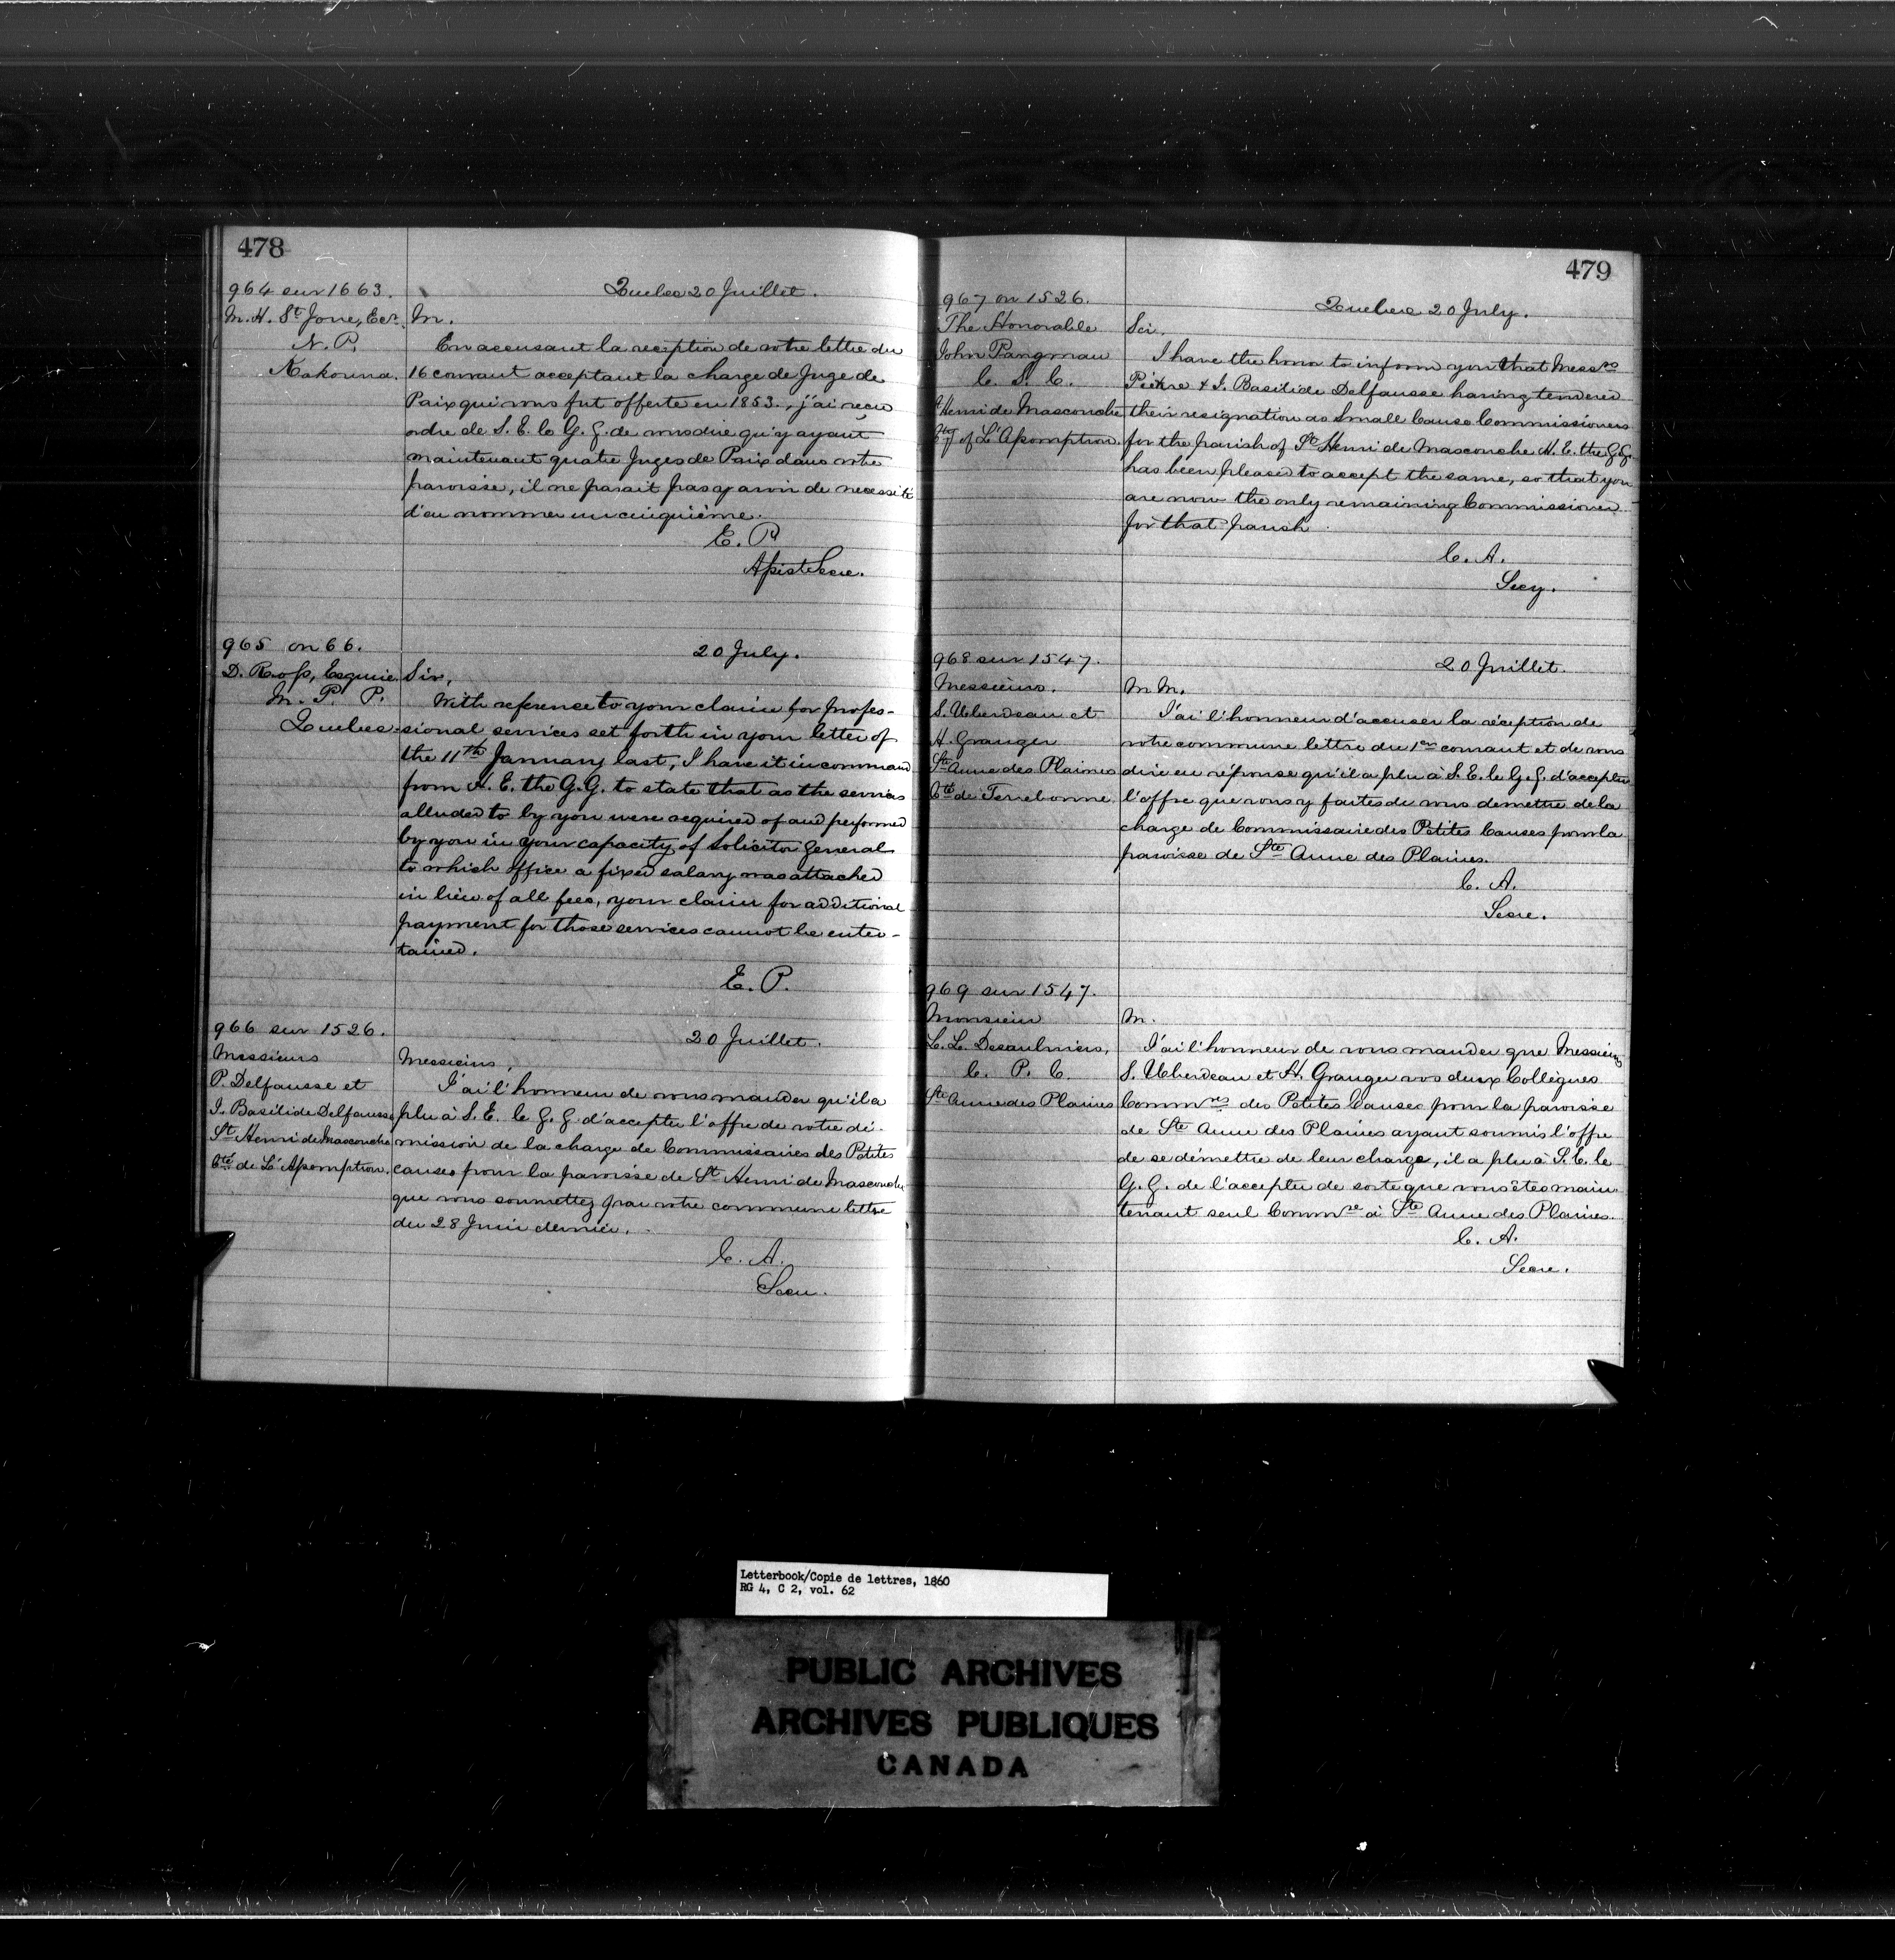 478
964 sur 1663.
M. H. St Jorre, Ecr.
N. P.
Kakouna.
Quebec 20 Juillet.
M.
En accusant la reception de votre lettre du
16 courant acceptant la charge de Juge de
Paix qui vous fut offerte en 1853., j'ai reçu
ordre de S. E. le G. G. de vous dire qu'y ayant
maintenant quatre Juges de Paix dans votre
paroisse, il ne parait pas y avoir de necessité
d'en nommer un cinquième.
E. P.
Assist Secre.
965 on 66.
D. Ross, Esquire
M. P. P.
Quebec
20 July.
Sir,
With reference to your claim for profes-
sional services set forth in your letter of
the 11th January last, I have it in command
from H. E. the G. G. to state that as the services
alluded to by you were required of and performed
by you in your capacity of Solicitor General
to which office a fixed salary was attached
in lieu of all fees, your claim for additional
payment for those services cannot be enter-
tained.
E. P.
966 sur 1526.
Messieurs
P. Delfausse et
J. Basilide Delfausse
St Henri de Mascouche
Cté de L'Assomption.
20 Juillet.
Messieurs,
J'ai l'honneur de vous mander qu'il a
plu à S. E. le G. G. d'accepter l'offre de votre dé-
mission de la charge de Commissaires des Petites
causes pour la paroisse de St Henri de Mascouche
que vous soumettez par votre commune lettre
du 28 Juin dernier.
C. A.
Secre.
479
967 on 1526.
The Honorable
John Pangman
C. S. C.
St Henri de Mascouche
Cty of L'Assomption.
Quebec 20 July.
Sir.
I have the honor to inform you that Messrs
Pierre & J. Basilide Delfausse having tendered
their resignation as Small Cause Commissioners
for the parish of St Henri de Mascouche H. E. the G. G.
has been pleased to accept the same, so that you
are now the only remaining Commissioner
for that parish.
C. A.
Secy.
968 sur 1547.
Messieurs.
S. Ueberdeau et
H. Granger
Ste Anne des Plaines
Cté de Terrebonne.
20 Juillet.
M M.
J'ai l'honneur d'accuser la réception de
votre commune lettre du 1er courant et de vous
dire en réponse qu'il a plu à S. E. le G. G. d'accepter
l'offre que vous y faites de vous demettre de la
charge de Commissaire des Petites Causes pour la
paroisse de Ste Anne des Plaines.
C. A.
Secre.
969 sur 1547.
Monsieur
L. L. Desaulniers,
C. P. C.
Ste Anne des Plaines
M.
J'ai l'honneur de vous mander que Messieurs
S. Ueberdeau et H. Granger vos deux Collègues
Commres des Petites Causes pour la paroisse
de Ste Anne des Plaines ayant soumis l'offre
de se démettre de leur charge, il a plu à S. E. le
G. G. de l'accepter de sorte que vous êtes main
tenant seul Commre à Ste Anne des Plaines.
C. A.
Secre.
Letterbook/Copie de lettres, 1860
RG 4, C 2, vol. 62
PUBLIC ARCHIVES
ARCHIVES PUBLIQUES
CANADA